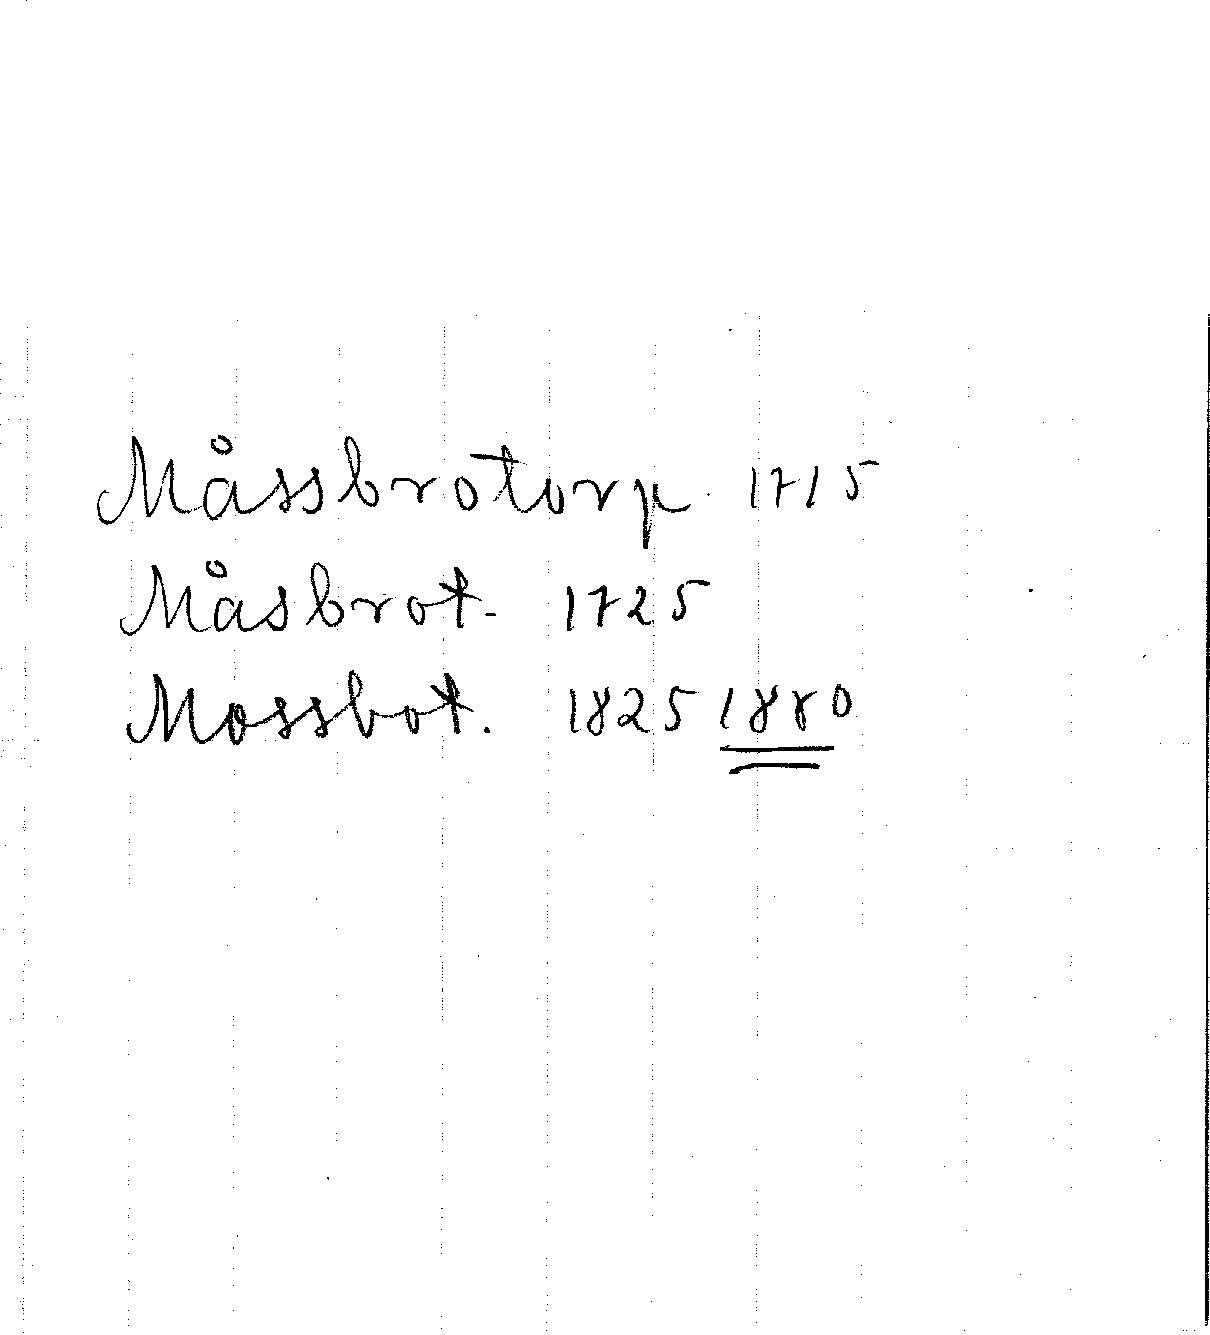 Måssbrotorp. 1715
Måsbrot. 1725
Mossbot. 1825 1880